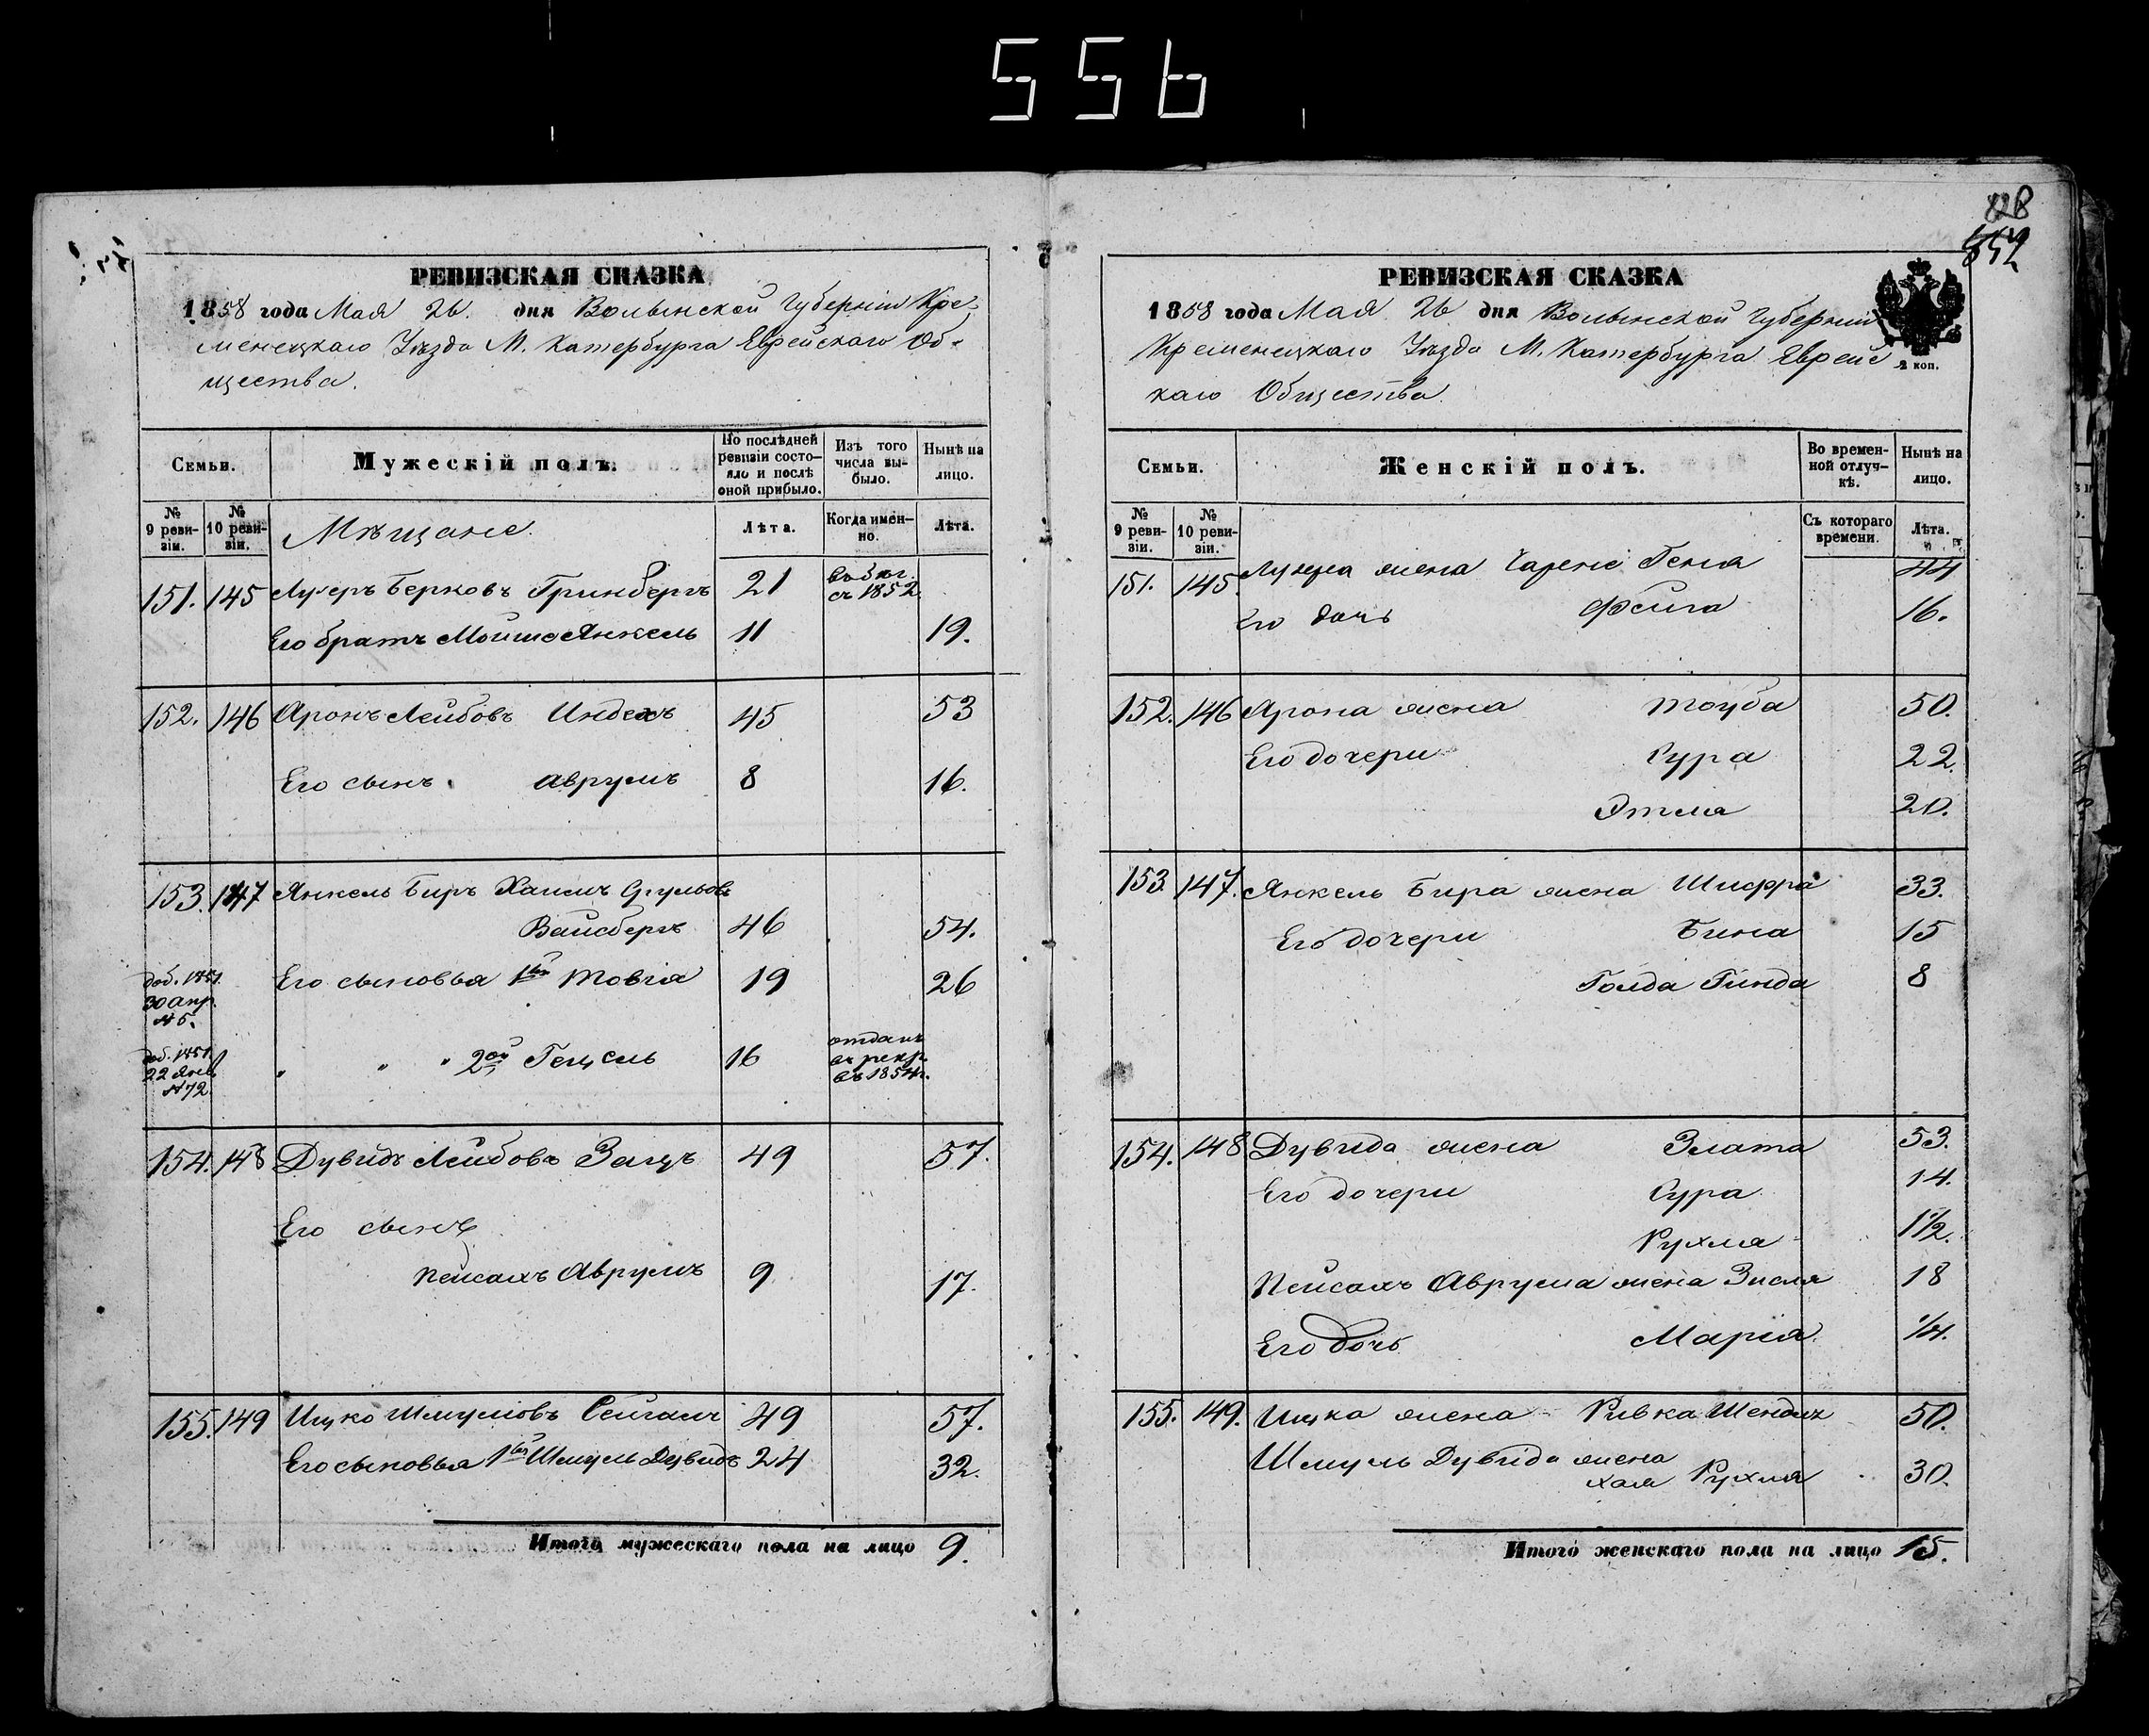 556
828
РЕВИЗСКАЯ СКАЗКА
1858 года Мая 26. дня Волынской Губерніи Кре-
менецкаго Уѣзда М. Катербурга Еврейскаго Об-
щества.
Семьи.
Мужескій полъ.
По послѣдней ревизіи состо-яло и послѣ оной прибыло.
Изъ того числа вы-было.
Нынѣ на лицо.
№ 9 реви-зіи.
№ 10 реви-зіи.
Мѣщане.
Лѣта.
Когда имен-но.
Лѣта.
151. 145 Берковъ Гринбергъ 21 съ 1852
Его братъ Мойше Янкель 11 19.
152. 146 Аронъ Лейбовъ Индехъ 45 53
Его сынъ Аврумъ 8 16.
153. 147 Янкель Биръ Хаимъ Срульовъ
Вайсбергъ 46 54.
доб. 1851. 30 апр. № 5.
Его сыновья 1й Товія 19 26
доб. 1851. 22 Янв. № 72
" " " 2ой Гецель 16 отданъ въ рекр. въ 1854г.
154. 148 Дувидъ Лейбовъ Зацъ 49 57.
Его сынъ
Пейсахъ Аврумъ 9 17.
155. 149 Ицко Шмулiовъ 49 57.
Его сыновья 1й Шмуль Дувидъ 24 32.
Итого мужескаго пола на лицо 9.
РЕВИЗСКАЯ СКАЗКА
1858 года Мая 26 дня Волынской Губерніи
Кременецкаго Уѣзда М. Катербурга Еврейс
каго Общества.
2 коп.
Семьи.
Женскій полъ.
Во времен-ной отлуч-кѣ.
Нынѣ на лицо.
№ 9 реви-зіи.
№ 10 реви-зіи.
Съ котораго времени.
Лѣта.
151. 145. жена Геня 44
Его дочь Фейга 16.
152. 146 Арона жена Тоуба 50.
Его дочери Сура 22.
Этля 20.
153. 147. Янкель Бира жена Шифра 33.
Его дочери Бина 15
Голда Гинда 8
154. 148 Дувида жена Злата 53.
Его дочери Сура 14.
Рухля 1½.
Пейсахъ Аврума жена Зисля 18
Его дочь Марія ¼.
155. 149. Ицка жена Ривка Шендля 50.
Шмуль Дувида жена
Хая Рухля 30.
Итого женскаго пола на лицо 15.